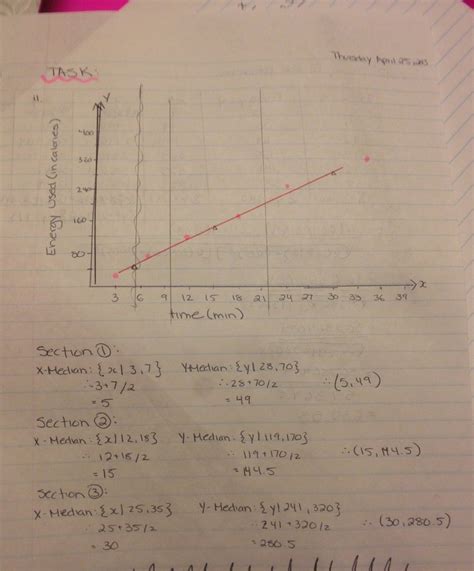 Thursday April 25,
TASK:
1)
Y
400
240
160
80
Energy Used (in calories)
X
3 6 9 12 15 18 21 24 27 30 33 36 39
time (min)
Section ①:
X-Median: {x | 3,7} Y Median: {y | 28,70}
∴ 3+7/2 ∴ 28+70/2 ∴ (5,49)
= 5 = 49
Section ②:
X-Median: {x | 12,18} Y-Median: {y | 119,170}
∴ 12+18/2 ∴ 119+170/2 ∴ (15,144.5)
= 15 = 144.5
Section ③:
X-Median: {x | 25,35} Y-Median: {y | 241,320}
∴ 25+35/2 ∴ 241+320/2 ∴ (30,280.5)
= 30 = 280.5